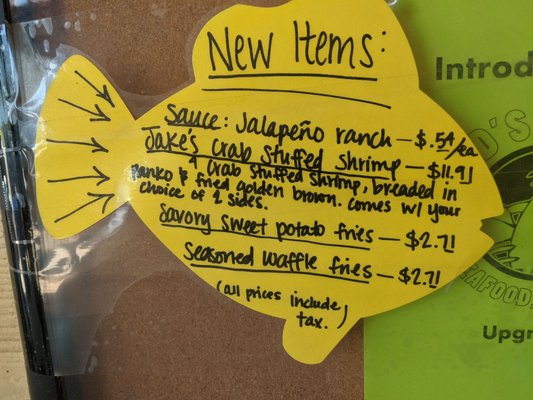 New Items:
Introd
Sauce: Jalapeño ranch — $.54/ea
Jake's Crab Stuffed Shrimp — $11.91
4 Crab Stuffed Shrimp, breaded in
panko & fried golden brown. Comes w/ your
choice of 2 sides.
Savory sweet potato fries — $2.71
Seasoned waffle fries — $2.71
(all prices include
tax.)
O'S
SEAFOOD
Upgr